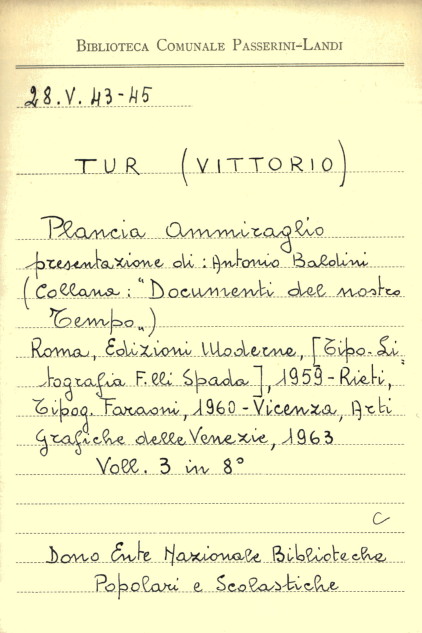 BIBLIOTECA COMUNALE PASSERINI-LANDI
28.V.43-45
TUR (VITTORIO)
Plancia Ammiraglio
presentazione di: Antonio Baldini
(Collana: "Documenti del nostro
Tempo„)
Roma, Edizioni Moderne, [Tipo-Li=
tografia F.lli Spada], 1959-Rieti,
Tipog. Faraoni, 1960-Vicenza, Arti
Grafiche delle Venezie, 1963
Voll. 3 in 8°
C
Dono Ente Nazionale Biblioteche
Popolari e Scolastiche